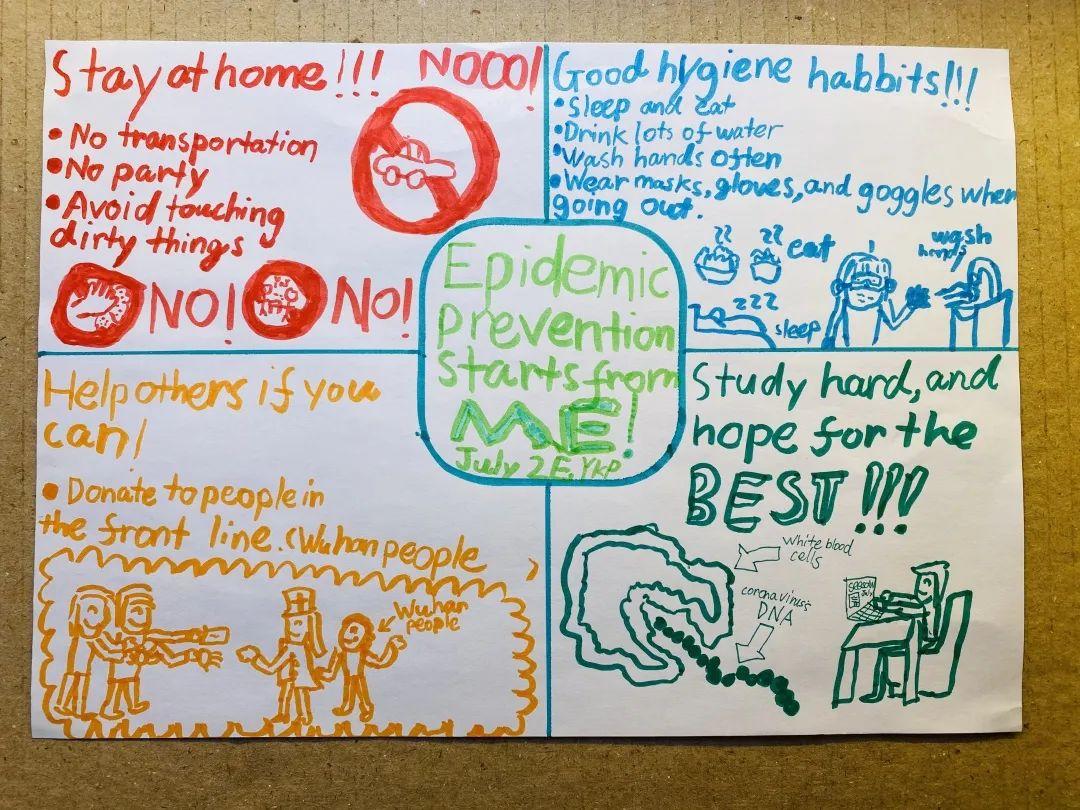 Stay at home!!!
NOOO!
• No transportation
• No party
• Avoid touching
dirty things
NO!
NO!
Good hygiene habbits!!!
• Sleep and eat
• Drink lots of water
• Wash hands often
• Wear masks, gloves, and goggles when
going out.
zz
zz
eat
wash
hands
zzz
sleep
Epidemic
prevention
starts from
ME!
July 2E, YKP
Help others if you
can!
• Donate to people in
the front line. (Wuhan people
Wuhan
people
Study hard, and
hope for the
BEST!!!
White blood
cells
coronavirus's
DNA